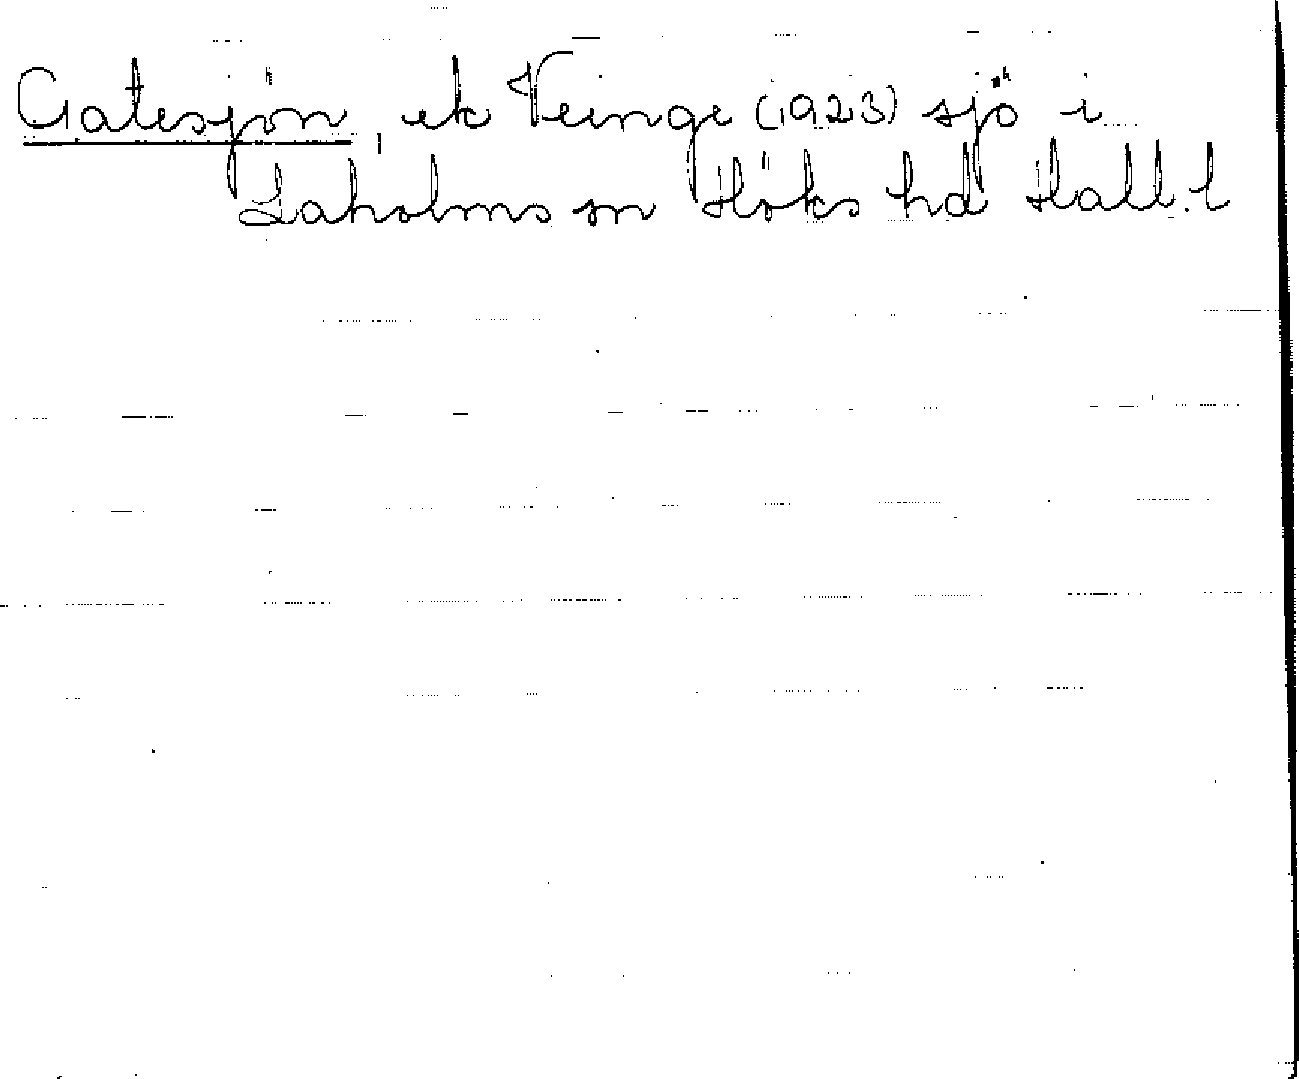 Gatesjön, ek Veinge (1923) sjö i
Laholms sn Höks hd Hall. l